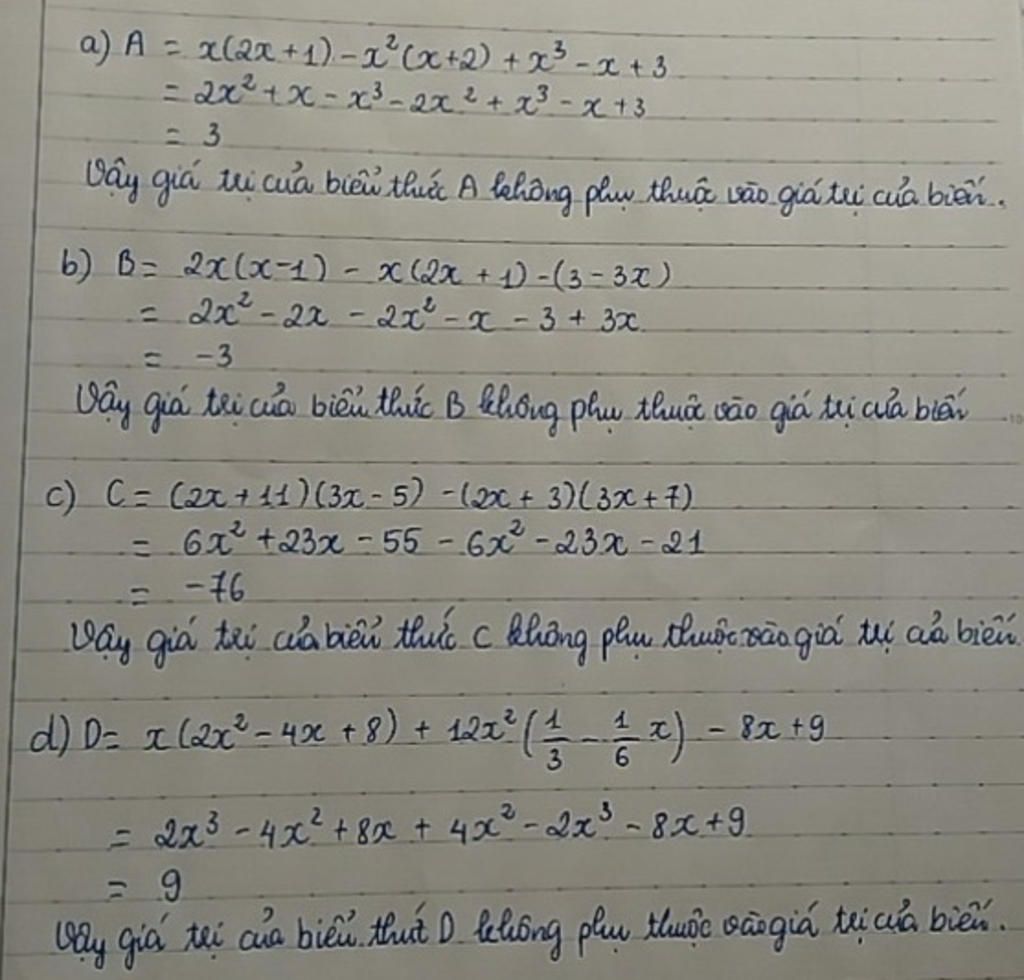 a) A = x(2x+1) - x²(x+2) + x³ - x + 3
= 2x² + x - x³ - 2x² + x³ - x + 3
= 3
Vậy giá trị của biểu thức A không phụ thuộc vào giá trị của biến.
b) B = 2x(x-1) - x(2x+1) - (3-3x)
= 2x² - 2x - 2x² - x - 3 + 3x
= -3
Vậy giá trị của biểu thức B không phụ thuộc vào giá trị của biến
c) C = (2x+11)(3x-5) - (2x+3)(3x+7)
= 6x² + 23x - 55 - 6x² - 23x - 21
= -76
Vậy giá trị của biểu thức C không phụ thuộc vào giá trị của biến.
d) D = x(2x² - 4x + 8) + 12x²(1/3 - 1/6 x) - 8x + 9
= 2x³ - 4x² + 8x + 4x² - 2x³ - 8x + 9
= 9
Vậy giá trị của biểu thức D không phụ thuộc vào giá trị của biến.